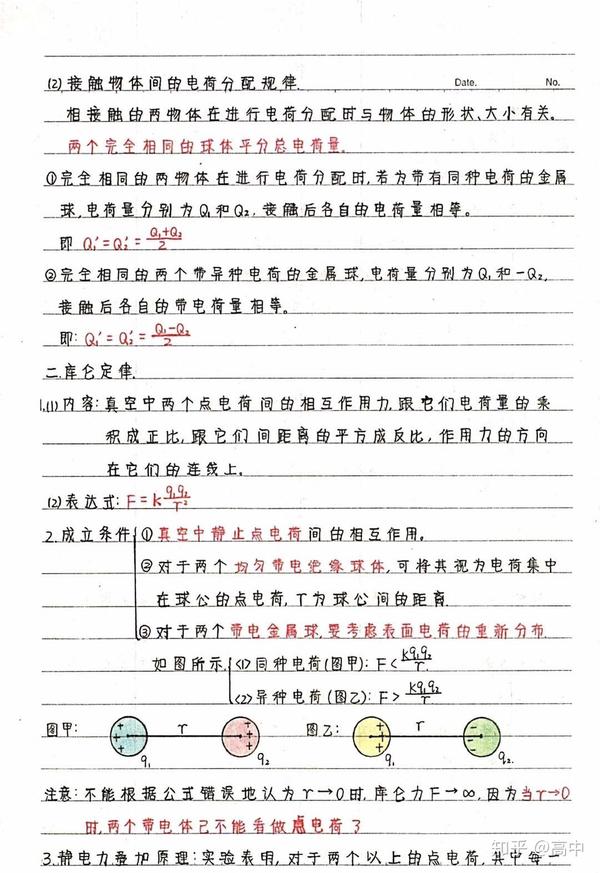 Date. No.
(2) 接触物体间的电荷分配规律.
相接触的两物体在进行电荷分配时与物体的形状、大小有关。
两个完全相同的球体平分总电荷量.
①完全相同的两物体在进行电荷分配时,若为带有同种电荷的金属
球,电荷量分别为Q₁和Q₂,接触后各自的电荷量相等。
即 Q₁′=Q₂′=(Q₁+Q₂)/2
②完全相同的两个带异种电荷的金属球,电荷量分别为Q₁和-Q₂,
接触后各自的带电荷量相等。
即: Q₁′=Q₂′=(Q₁-Q₂)/2
二.库仑定律.
1.(1)内容:真空中两个点电荷间的相互作用力,跟它们电荷量的乘
积成正比,跟它们间距离的平方成反比,作用力的方向
在它们的连线上。
(2)表达式:F=k q₁q₂/r²
2.成立条件 ①真空中静止点电荷间的相互作用。
②对于两个均匀带电绝缘球体,可将其视为电荷集中
在球心的点电荷,r为球心间的距离.
③对于两个带电金属球,要考虑表面电荷的重新分布
如图所示 <1>同种电荷(图甲): F<kq₁q₂/r
<2>异种电荷(图乙): F>kq₁q₂/r
图甲: + + + + r + + + + 图乙: + + + + r - - -
q₁ q₂ q₁ q₂.
注意:不能根据公式错误地认为r→0时,库仑力F→∞,因为当r→0
时,两个带电体已不能看做点电荷了
3.静电力叠加原理:实验表明,对于两个以上的点电荷,其中每一
知乎 @高中